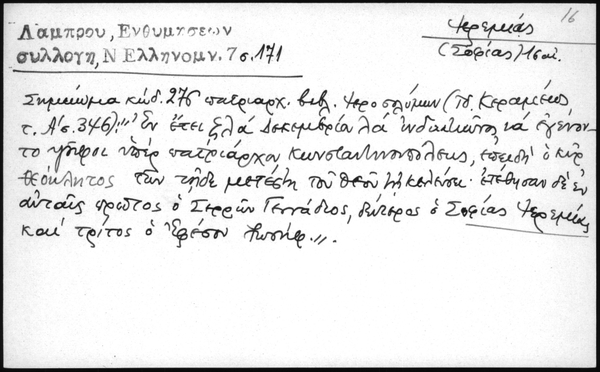 16
Ἱερεμίας
(Σοφίας) 1 Ϛαι.
Λάμπρου, Ἐνθυμήσεων
συλλογή, Ν Ελληνομν. 7 σ. 171
Σημείωμα κώδ. 276 πατριαρχ. βιβλ. Ἱεροσολύμων (Π. Κεραμέως
τ. Α' σ. 346): "Ἐν ἔτει ζλα Δεκεμβρίῳ λα ἰνδικτιῶνος ια ἐγένον-
το ψῆφοι ὑπὲρ πατριάρχου Κωνσταντινουπόλεως, ἐπειδὴ ὁ κὺρ
Θεόληπτος τῶν τῇδε μετέστη τοῦ Θεοῦ κελεύσει· ἐτέθησαν δὲ ἐν
αὐταῖς πρῶτος ὁ Σερρῶν Γεννάδιος, δεύτερος ὁ Σοφίας Ἱερεμίας
καὶ τρίτος ὁ Ἐφέσου Ἰωσήφ..".